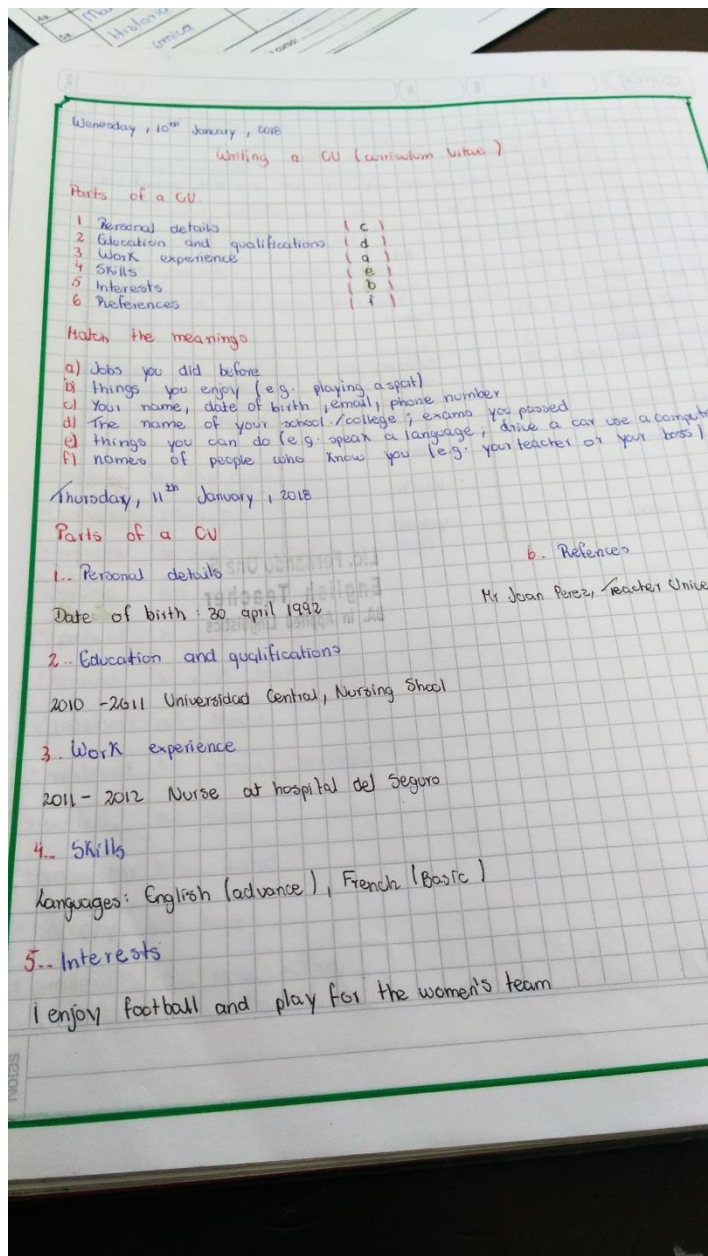 Historia
Wenesday, 10th January, 2018
Writing a CV (curriculum vitae)
Parts of a CV.
1 Personal details ( c )
2 Education and qualifications ( d )
3 Work experience ( a )
4 Skills ( e )
5 Interests ( b )
6 References ( f )
Match the meanings
a) Jobs you did before
b) things you enjoy (e.g. playing a
c) Your name, date of birth, email, phone number
d) The name of your school/college; exams you passed
e) things you can do (e.g. speak a language; drive a car use a compute
f) names of people who know you (e.g. your teacher or your boss)
Thursday, 11th January, 2018
Parts of a CV
1.. Personal details
Date of birth : 30 april 1992
6. Refences
Mr Joan Perez, Teacher Unive
2.. Education and qualifications
2010 - 2011 Universidad Central, Nursing Shool
3.. Work experience
2011 - 2012 Nurse at hospital del Seguro
4.. Skills
Languages: English (advance), French (Basic)
5.. Interests
i enjoy football and play for the women's team
Notas